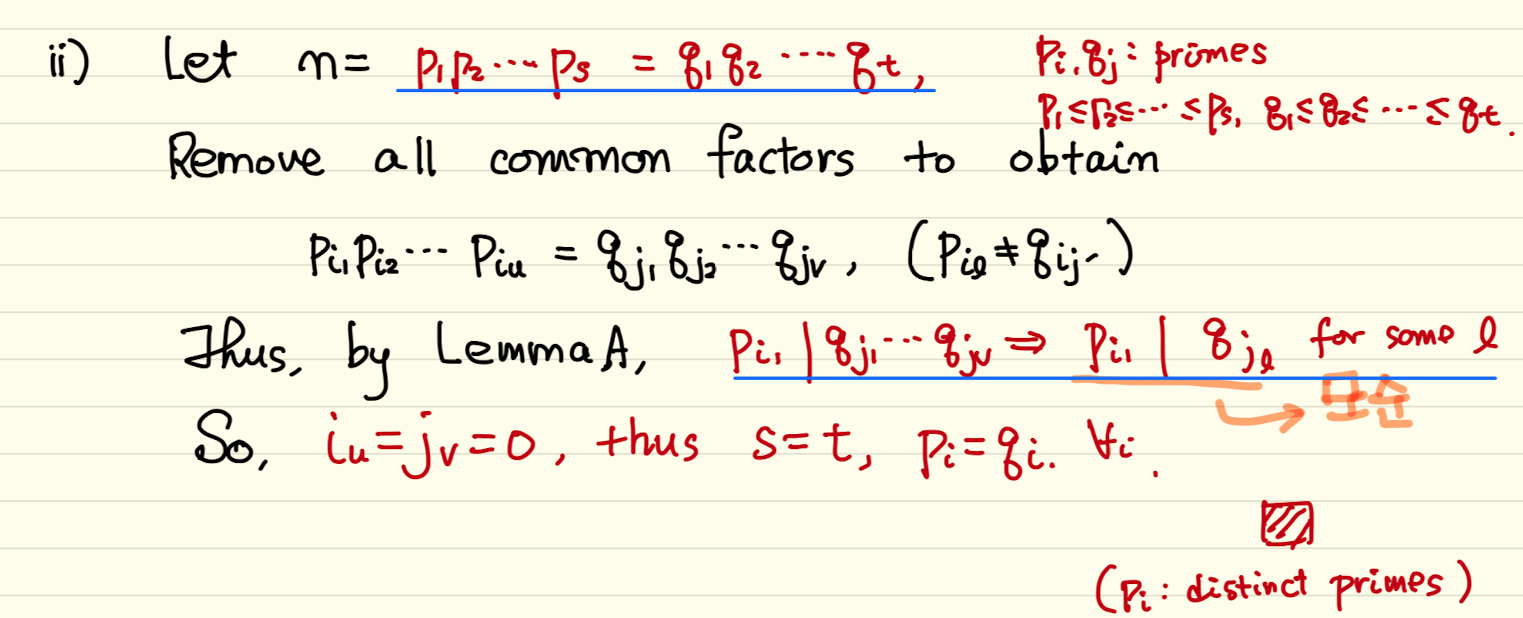 ii) Let n = p₁p₂ ⋯ pₛ = q₁q₂ ⋯ qₜ,
pᵢ, qⱼ : primes
p₁ ≤ p₂ ≤ ⋯ ≤ pₛ, q₁ ≤ q₂ ≤ ⋯ ≤ qₜ.
Remove all common factors to obtain
p_{i₁} p_{i₂} ⋯ p_{i_u} = q_{j₁} q_{j₂} ⋯ q_{j_v}, (p_{i_ℓ} ≠ q_{ij'})
Thus, by Lemma A, p_{i₁} | q_{j₁} ⋯ q_{j_v} ⇒ p_{i₁} | q_{j_ℓ} for some ℓ
모순
So, i_u = j_v = 0, thus s = t, pᵢ = qᵢ. ∀i.
(pᵢ : distinct primes)